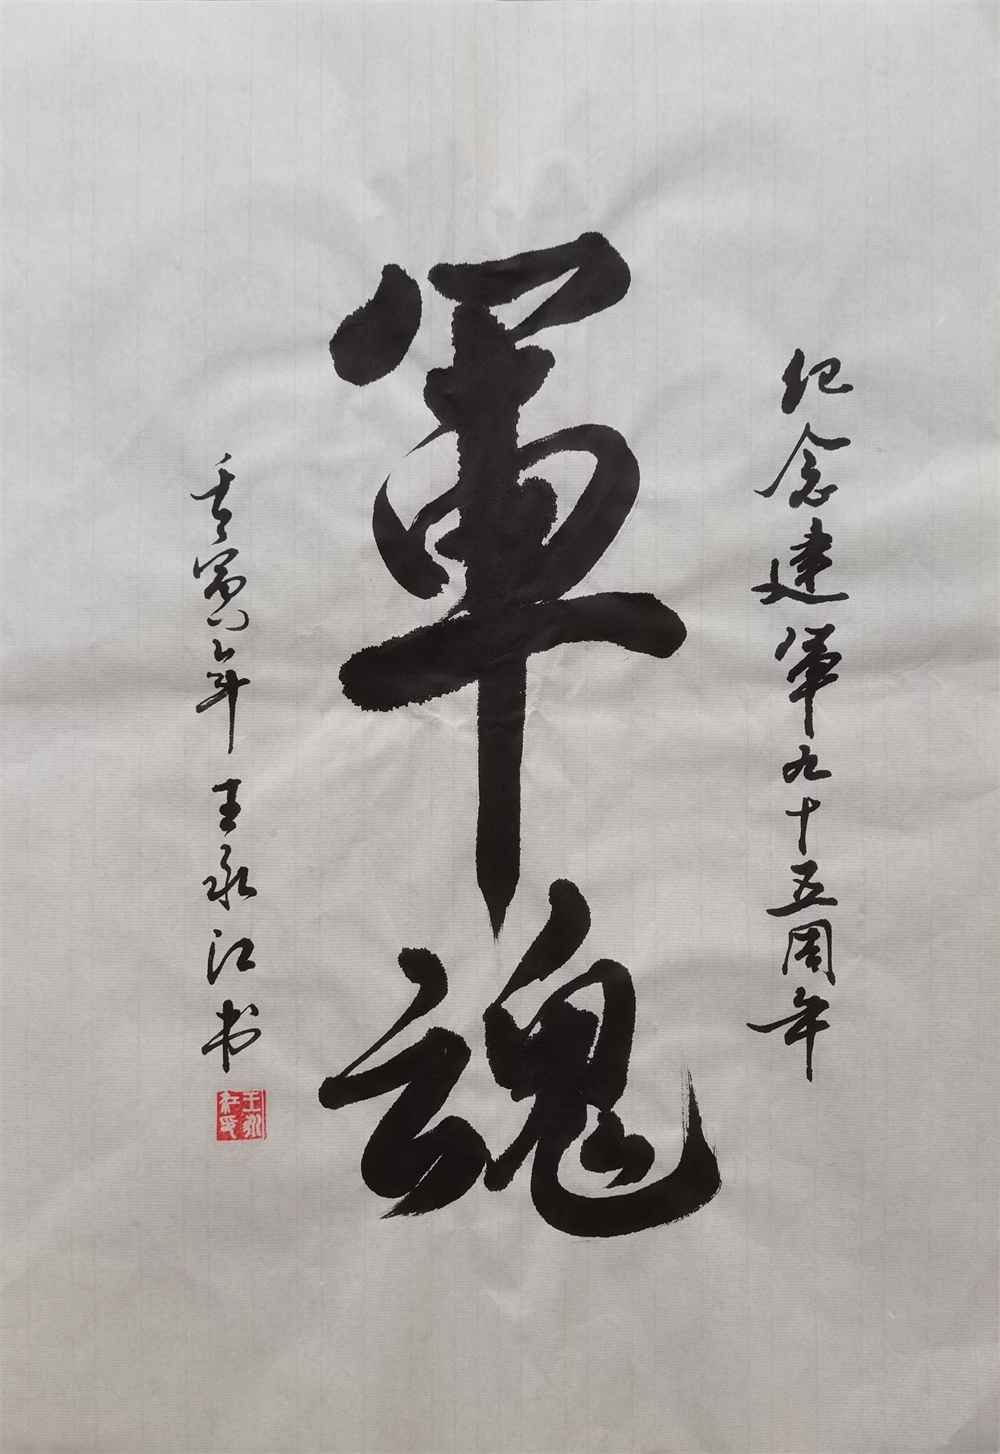 纪念建軍九十五周年
軍魂
壬寅年 王永江书
王永江印